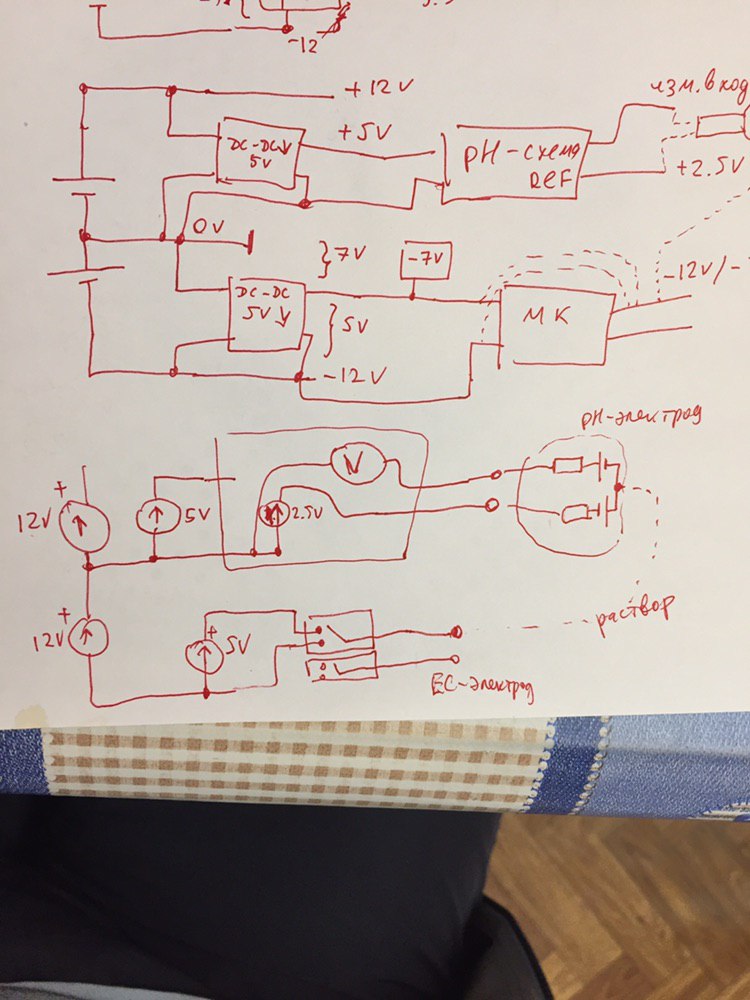 -12
+12V
изм. вход
DC-DC↓
5V
+5V
pH-схема
REF
+2.5V
0V
}7V
-7V
-12V/-
DC-DC
5V↓
}5V
МК
-12V
pH-электрод
+
12V
5V
V
2.5V
+
12V
+
5V
раствор
EC-электрод